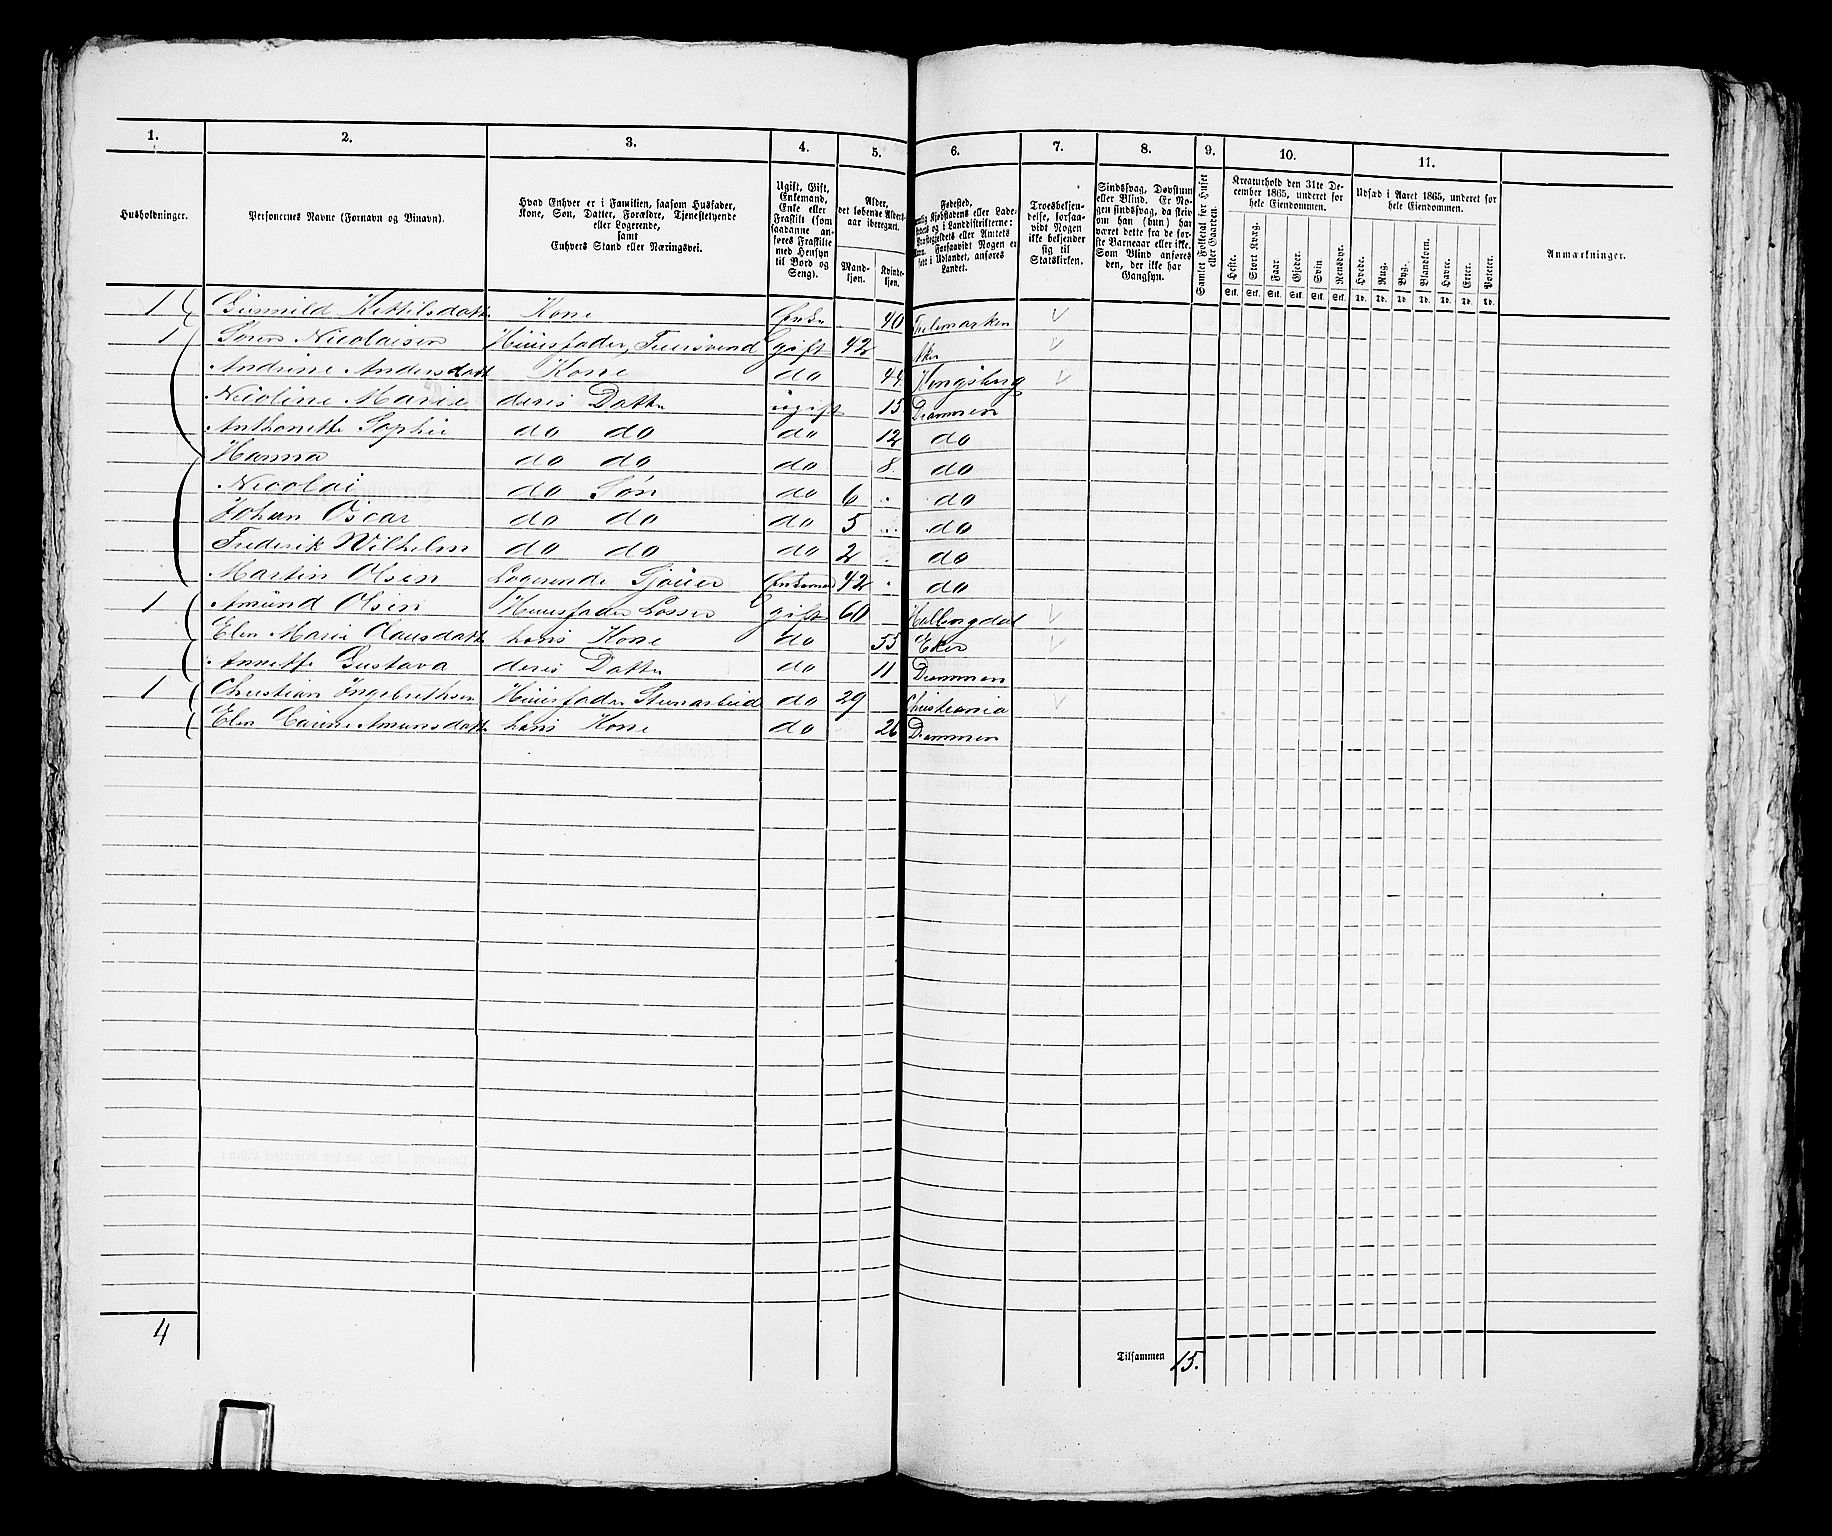 1. 2. 3. 4. 5. 6. 7. 8. 9. 10. 11.
Husholdninger.
Personernes Navne (Fornavn og Tilnavn).
Hvad Enhver er i Familien, saasom Husfader,
Kone, Søn, Datter, Forældre, Tjenestetyende
eller Logerende,
samt
Enhvers Stand eller Næringsvei.
Ugift, Gift,
Enkemand,
Enke eller
Fraskilt (som
saadanne an-
føres Fraskilte
med Hensyn
til Bord og
Seng).
Alder,
det løbende Alders-
aar iberegnet.
Mand-
kjøn.
Kvinde-
kjøn.
Fødested,
Kjøbstadens eller Lade-
og i Landdistrikterne:
Præstegjeldets eller Amtets
Navn. Forsaavidt Nogen er
født i Udlandet, anføres
Landet.
Troesbekjen-
delse, forsaa-
vidt Nogen
ikke bekjender
sig til
Statskirken.
Sindssvag, Døvstum
eller Blind. Er No-
gen sindssvag, da skriv
om han (hun) har
været dette fra de før-
ste Barneaar eller ikke.
Som Blind anføres
den, der ikke har
Gangsyn.
Samlet Folketal for Huset
eller Gaarden.
Kreaturhold den 31te De-
cember 1865, underet for
hele Eiendommen.
Heste. Stort Kvæg. Faar. Gjeder. Svin. Rensdyr.
Stk. Stk. Stk. Stk. Stk. Stk.
Udsæd i Aaret 1865, underet for
hele Eiendommen.
Hvede. Rug. Byg. Blandkorn. Havre. Erter. Poteter.
Td. Td. Td. Td. Td. Td. Td.
Anmærkninger.
1 Gunnild Kittilsdatt. Kone Enke 40 Thelemarken
1 Søren Nicolaisen Huusfader, gift 42 Aker
Andrine Andersdatt Kone do 44 Kongsberg
Nicoline Marie deres Datter ugift 15 Drammen
Anthonette Sophie do do do 12 do
Hanna do do do 8 do
Nicolai do Søn do 6 do
Johan Oscar do do do 5 do
Frederik Wilhelm do do do 2 do
Martin Olsen Logerende Sjouer Enkemand 42 do
1 Amund Olsen Huusfader Losser gift 60 Hallingdal
Elen Marie Clausdatt hans Kone do 55 Eker
Annette Gustava deres Datter do 11 Drammen
1 Christian Ingebrethsen Huusfader Steenarbeid do 29 Christiania
Elen Carine Amunsdatt hans Kone do 26 Drammen
4
Tilsammen 15.